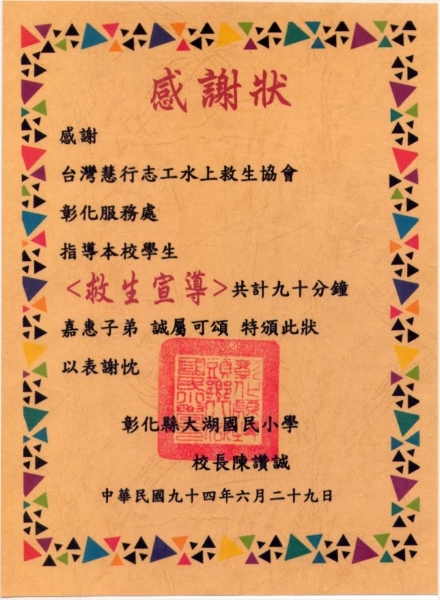 感謝狀
感謝
台灣慧行志工水上救生協會
彰化服務處
指導本校學生
<救生宣導>共計九十分鐘
嘉惠子弟 誠屬可頌 特頒此狀
以表謝忱
彰化縣大湖國民小學
校長陳讚誠
中華民國九十四年六月二十九日